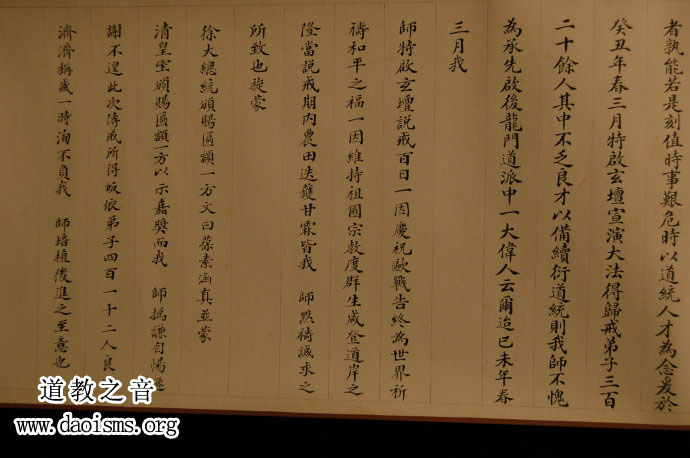 者孰能若是刻值時事艱危時以道統人才為念爰於
癸丑年春三月特啟玄壇宣演大法得歸戒弟子三百
二十餘人其中不乏良才以備續衍道統則我師不愧
為承先啟後龍門道派中一大偉人云爾迨已未年春
三月我
師特啟玄壇說戒百日一因慶祝歐戰告終為世界祈
禱和平之福一因維持祖國宗教度群生咸登道岸之
隆當說戒期內農田迭蘉甘霖皆我 師默禱誠求之
所致也旋蒙
徐大總統頒賜匾額一方文曰葆素涵真並蒙
清皇室頒賜匾額一方以示嘉獎而我 師撝謙自惕
謝不遑此次傳戒所得皈依弟子四百一十二人良
濟濟稱盛一時洵不負我 師培植後進之至意也
道教之音
www.daoisms.org